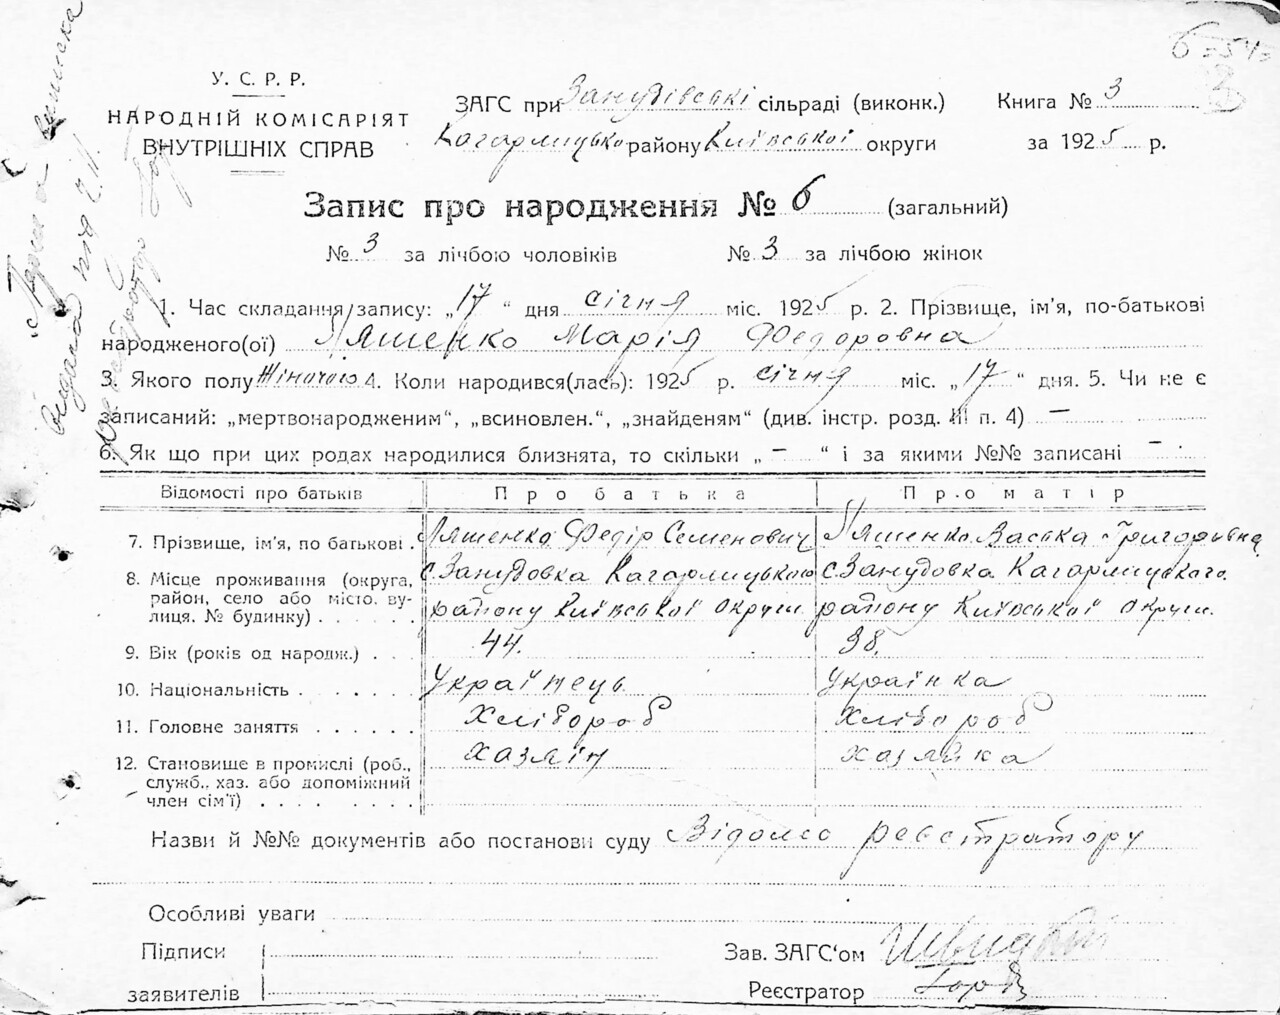 б-54-
3
У. С. Р. Р.
НАРОДНІЙ КОМІСАРІЯТ
ВНУТРІШНІХ СПРАВ
ЗАГС при Занудівські сільраді (виконк.) Книга № 3
Кагарлицько району Київської округи за 1925 р.
Запис про народження № 6 (загальний)
№ 3 за лічбою чоловіків № 3 за лічбою жінок
1. Час складання запису: „17“ дня січня міс. 1925 р. 2. Прізвище, ім'я, по-батькові
народженого(ої) Ляшенко Марія Федоровна
3. Якого полу Жіночого 4. Коли народився(лась): 1925 р. січня міс. „17“ дня. 5. Чи не є
записаний: „мертвонародженим“, „всиновлен.“, „знайденям“ (див. інстр. розд. III п. 4) —
6. Як що при цих родах народилися близнята, то скільки „ – “ і за якими №№ записані –
Відомості про батьків Про батька Про матір
7. Прізвище, ім'я, по батькові . Ляшенко Федір Семенович Ляшенко Васька Григоровна
8. Місце проживання (округа, с. Занудовка Кагарлицького с. Занудовка Кагарлицького
район, село або місто, ву- району Київської округи. району Київської округи.
лиця, № будинку) . . . . . .
9. Вік (років од народж.) . . . 44. 38.
10. Національність . . . . . . . Українець Українка
11. Головне заняття . . . . . . Хлібороб Хлібороб
12. Становище в промислі (роб., хазяін хазяйка
служб., хаз. або допоміжний
член сім'ї) . . . . . . . .
Назви й №№ документів або постанови суду Відомо реєстратору
Особливі уваги
Підписи Зав. ЗАГС'ом
заявителів Реєстратор